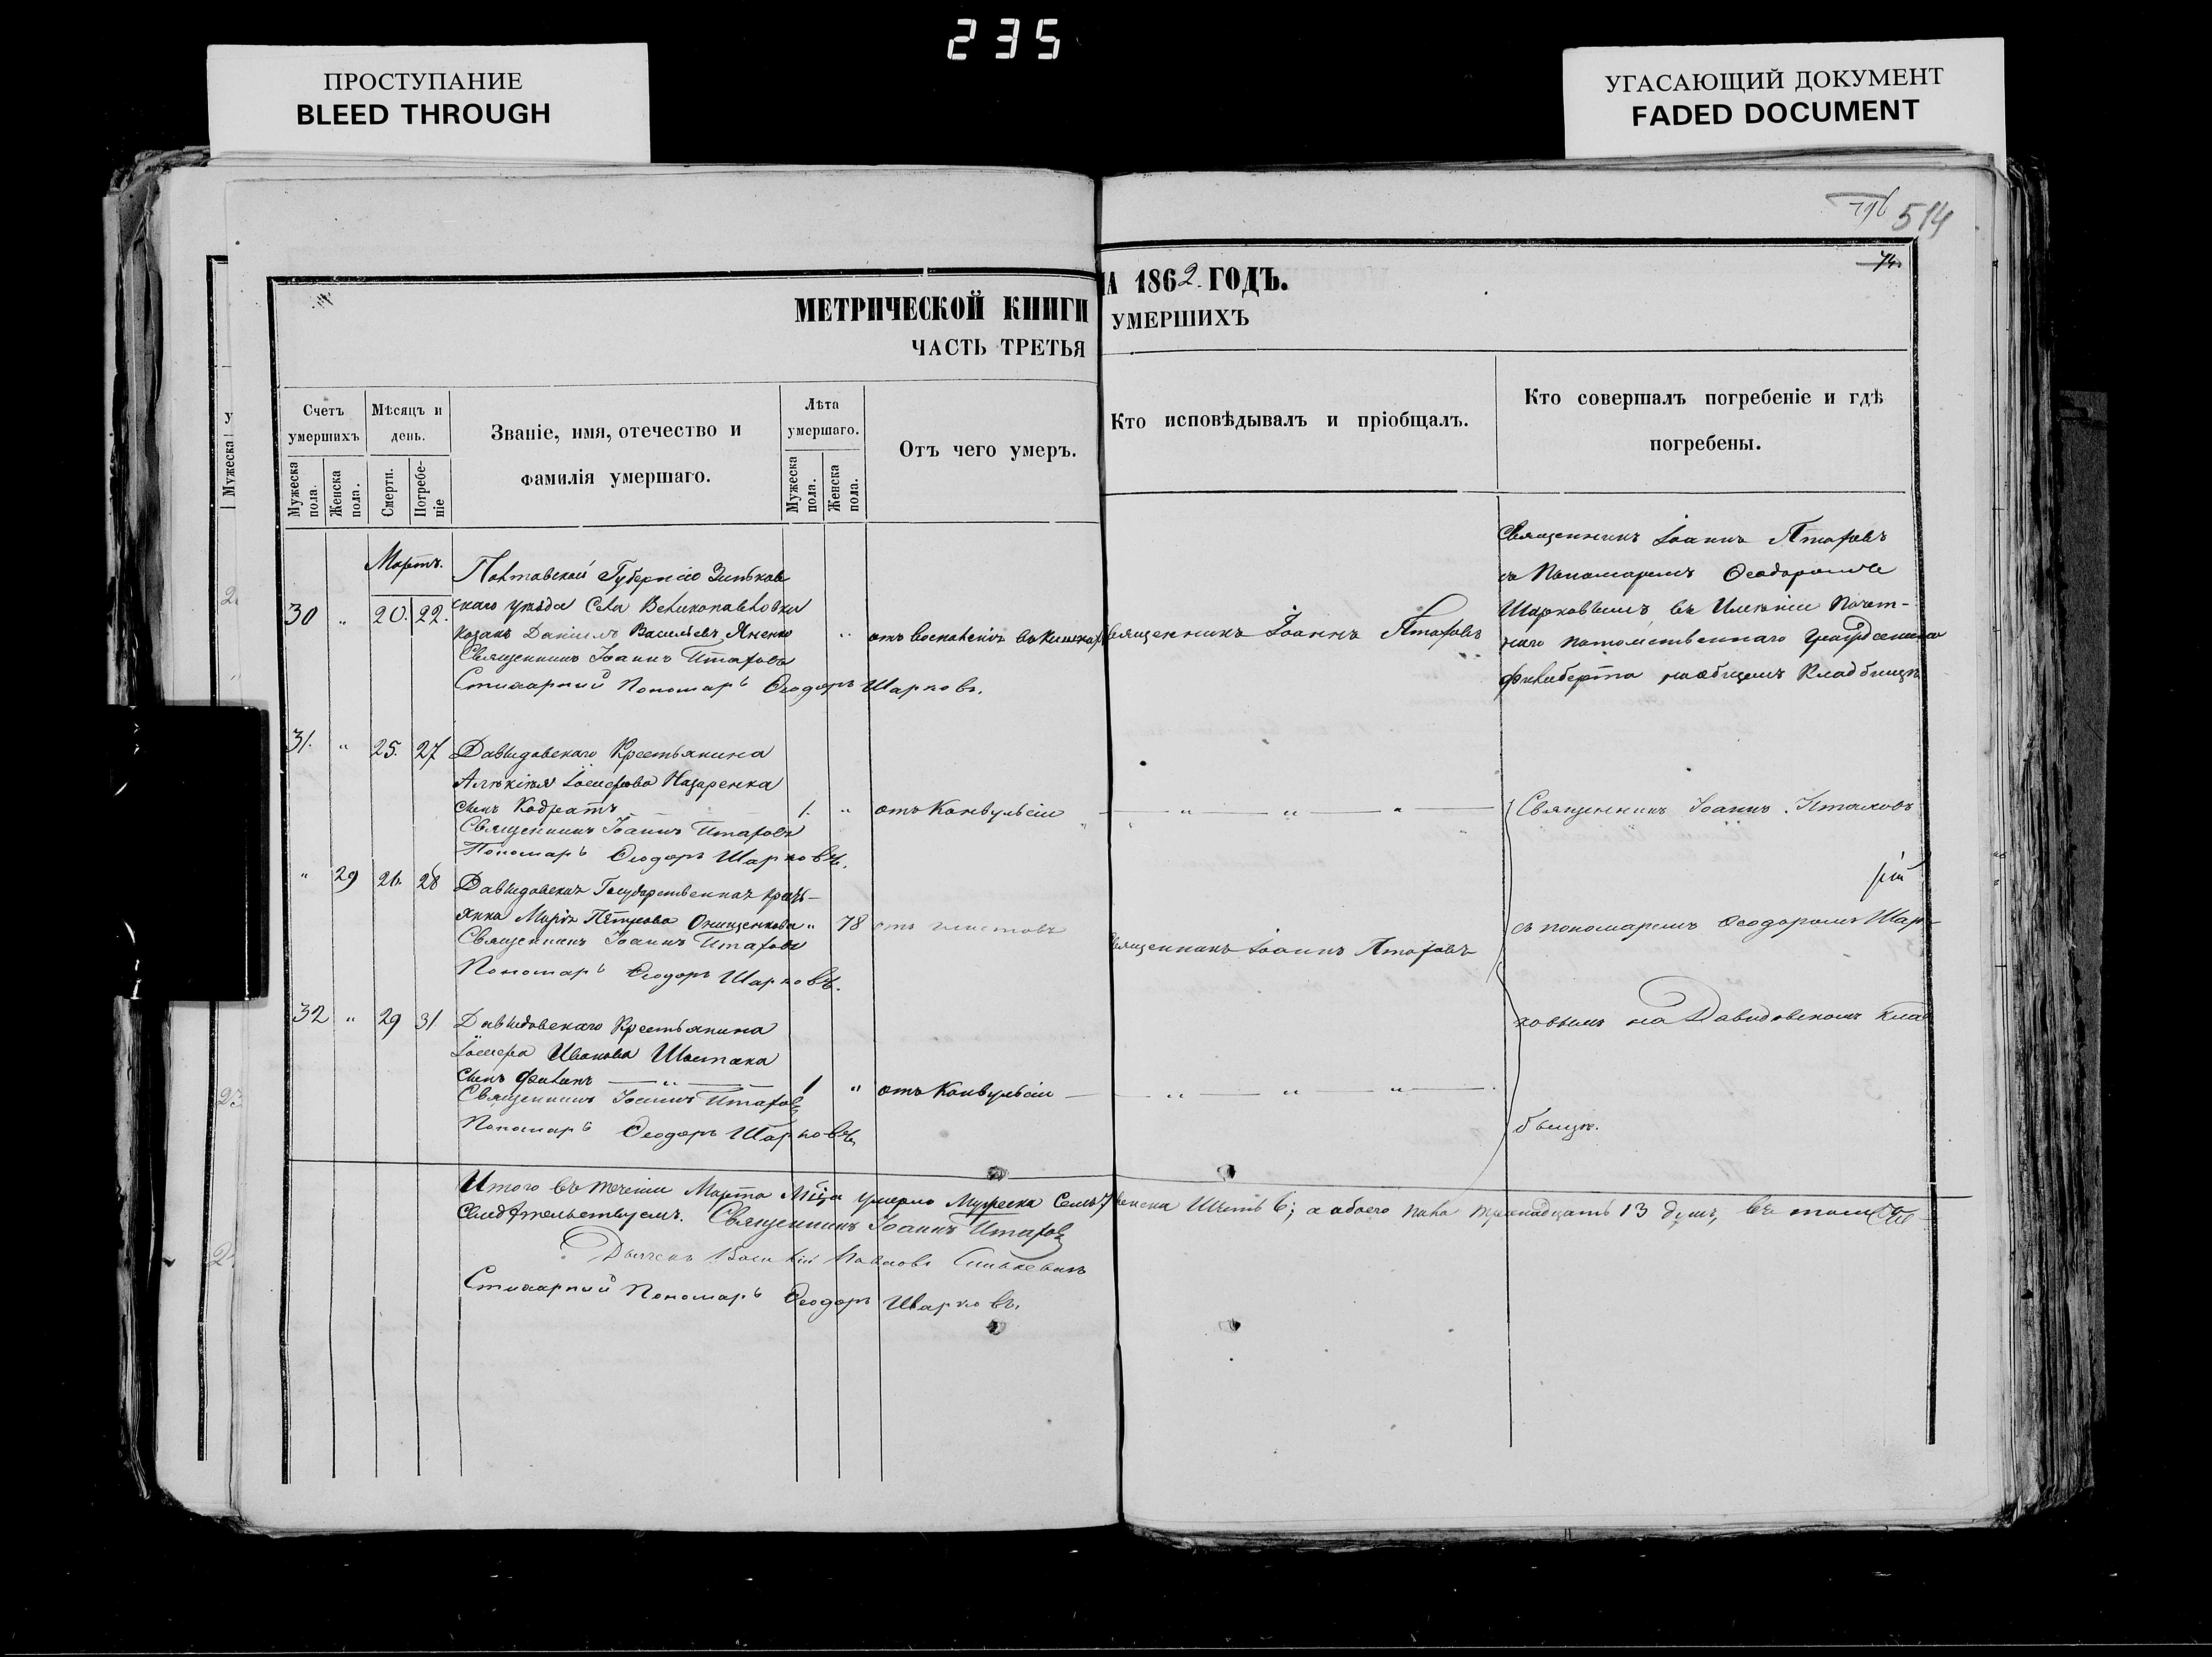 235
ПРОСТУПАНИЕ
BLEED THROUGH
УГАСАЮЩИЙ ДОКУМЕНТ
FADED DOCUMENT
514
74
МЕТРИЧЕСКОЙ КНИГИ НА 1862. ГОДЪ.
ЧАСТЬ ТРЕТЬЯ УМЕРШИХЪ
Счетъ умершихъ
Мужеска пола.
Женска пола.
Мѣсяцъ и день.
Смерти.
Погребеніе
Званіе, имя, отечество и
фамилія умершаго.
Лѣта умершаго.
Мужеска пола.
Женска пола.
Отъ чего умеръ.
Кто исповѣдывалъ и пріобщалъ.
Кто совершалъ погребеніе и гдѣ
погребены.
Мартъ.
30 " 20. 22.
Полтавской Губерніи Зиньков
скаго уѣзда Села Великопавловки
Козакъ Даніилъ Васильевъ Яненко
" отъ воспаленія въ кишкахъ
Священникъ Іоаннъ Птаховъ
Священникъ Іоаннъ Птаховъ
Стихарный Пономарь Ѳеодоръ Шарковъ.
Священникъ Іоаннъ Птаховъ
съ Пономаремъ Ѳеодоромъ
Шарковымъ въ Имѣніи Почет-
наго потомственнаго Гражданина
Филиберта на общемъ Кладбищѣ
31. " 25. 27
Давыдовскаго Крестьянина
Іосифова Назаренка
сынъ Кодратъ 1. " отъ Конвульсіи
Священникъ Іоаннъ Птаховъ
Пономарь Ѳеодоръ Шарковъ.
Священникъ Іоаннъ Птаховъ
" 29 26. 28
Давыдовская Государственная кресть-
янка Марія Петрова Онищенкова " 78
Священникъ Іоаннъ Птаховъ
Пономарь Ѳеодоръ Шарковъ.
Священникъ Іоаннъ Птаховъ
съ пономаремъ Ѳеодоромъ Шар-
32 " 29 31
Давыдовскаго Крестьянина
Іосифа Иванова Шостака
сынъ Филипъ 1 " отъ Конвульсіи
Священникъ Іоаннъ Птаховъ
Пономарь Ѳеодоръ Шарковъ
ковымъ на Давидовскомъ клад
бищѣ.
Итого въ теченіи Марта Мца умерло Мужеска Семь 7 женска Шесть 6; а обоего пола тринадцать 13 душъ, въ томъ и
свидѣтельствуемъ. Священникъ Іоаннъ Птаховъ
Дьячекъ Василій Павловъ
Стихарный Пономарь Ѳеодоръ Шарковъ.